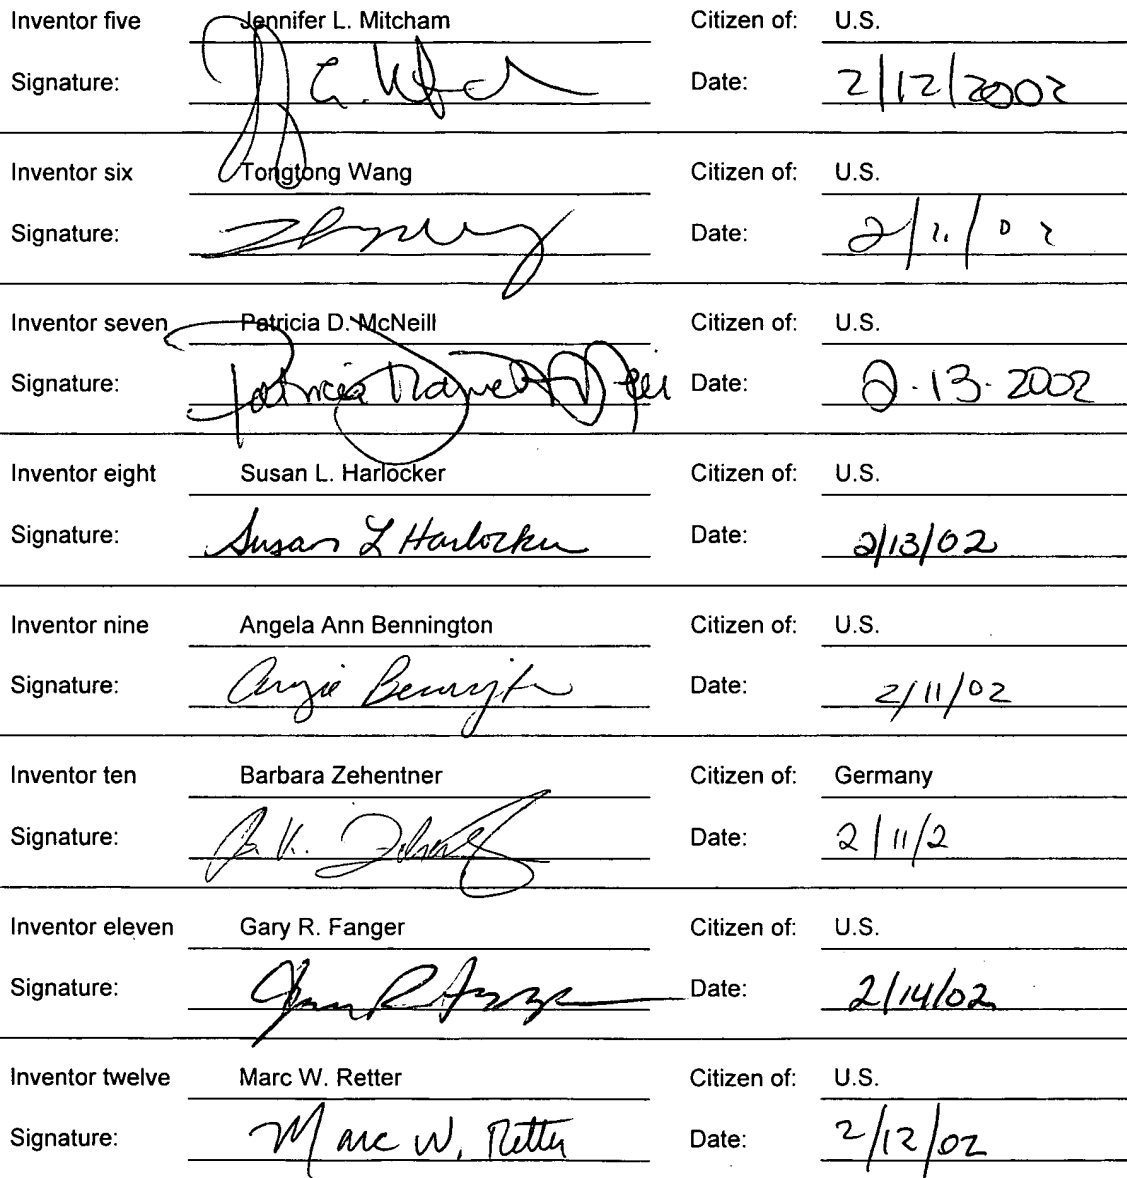 Inventor five Jennifer L. Mitcham Citizen of: U.S.
Signature: Date: 2/12/2002
Inventor six Tongtong Wang Citizen of: U.S.
Signature: Date: 2/11/02
Inventor seven Patricia D. McNeill Citizen of: U.S.
Signature: Patricia Date: 2.13.2002
Inventor eight Susan L. Harlocker Citizen of: U.S.
Signature: Susan L Harlocker Date: 2/13/02
Inventor nine Angela Ann Bennington Citizen of: U.S.
Signature: Angie Bennington Date: 2/11/02
Inventor ten Barbara Zehentner Citizen of: Germany
Signature: Date: 2/11/2
Inventor eleven Gary R. Fanger Citizen of: U.S.
Signature: Date: 2/14/02
Inventor twelve Marc W. Retter Citizen of: U.S.
Signature: Marc W. Retter Date: 2/12/02